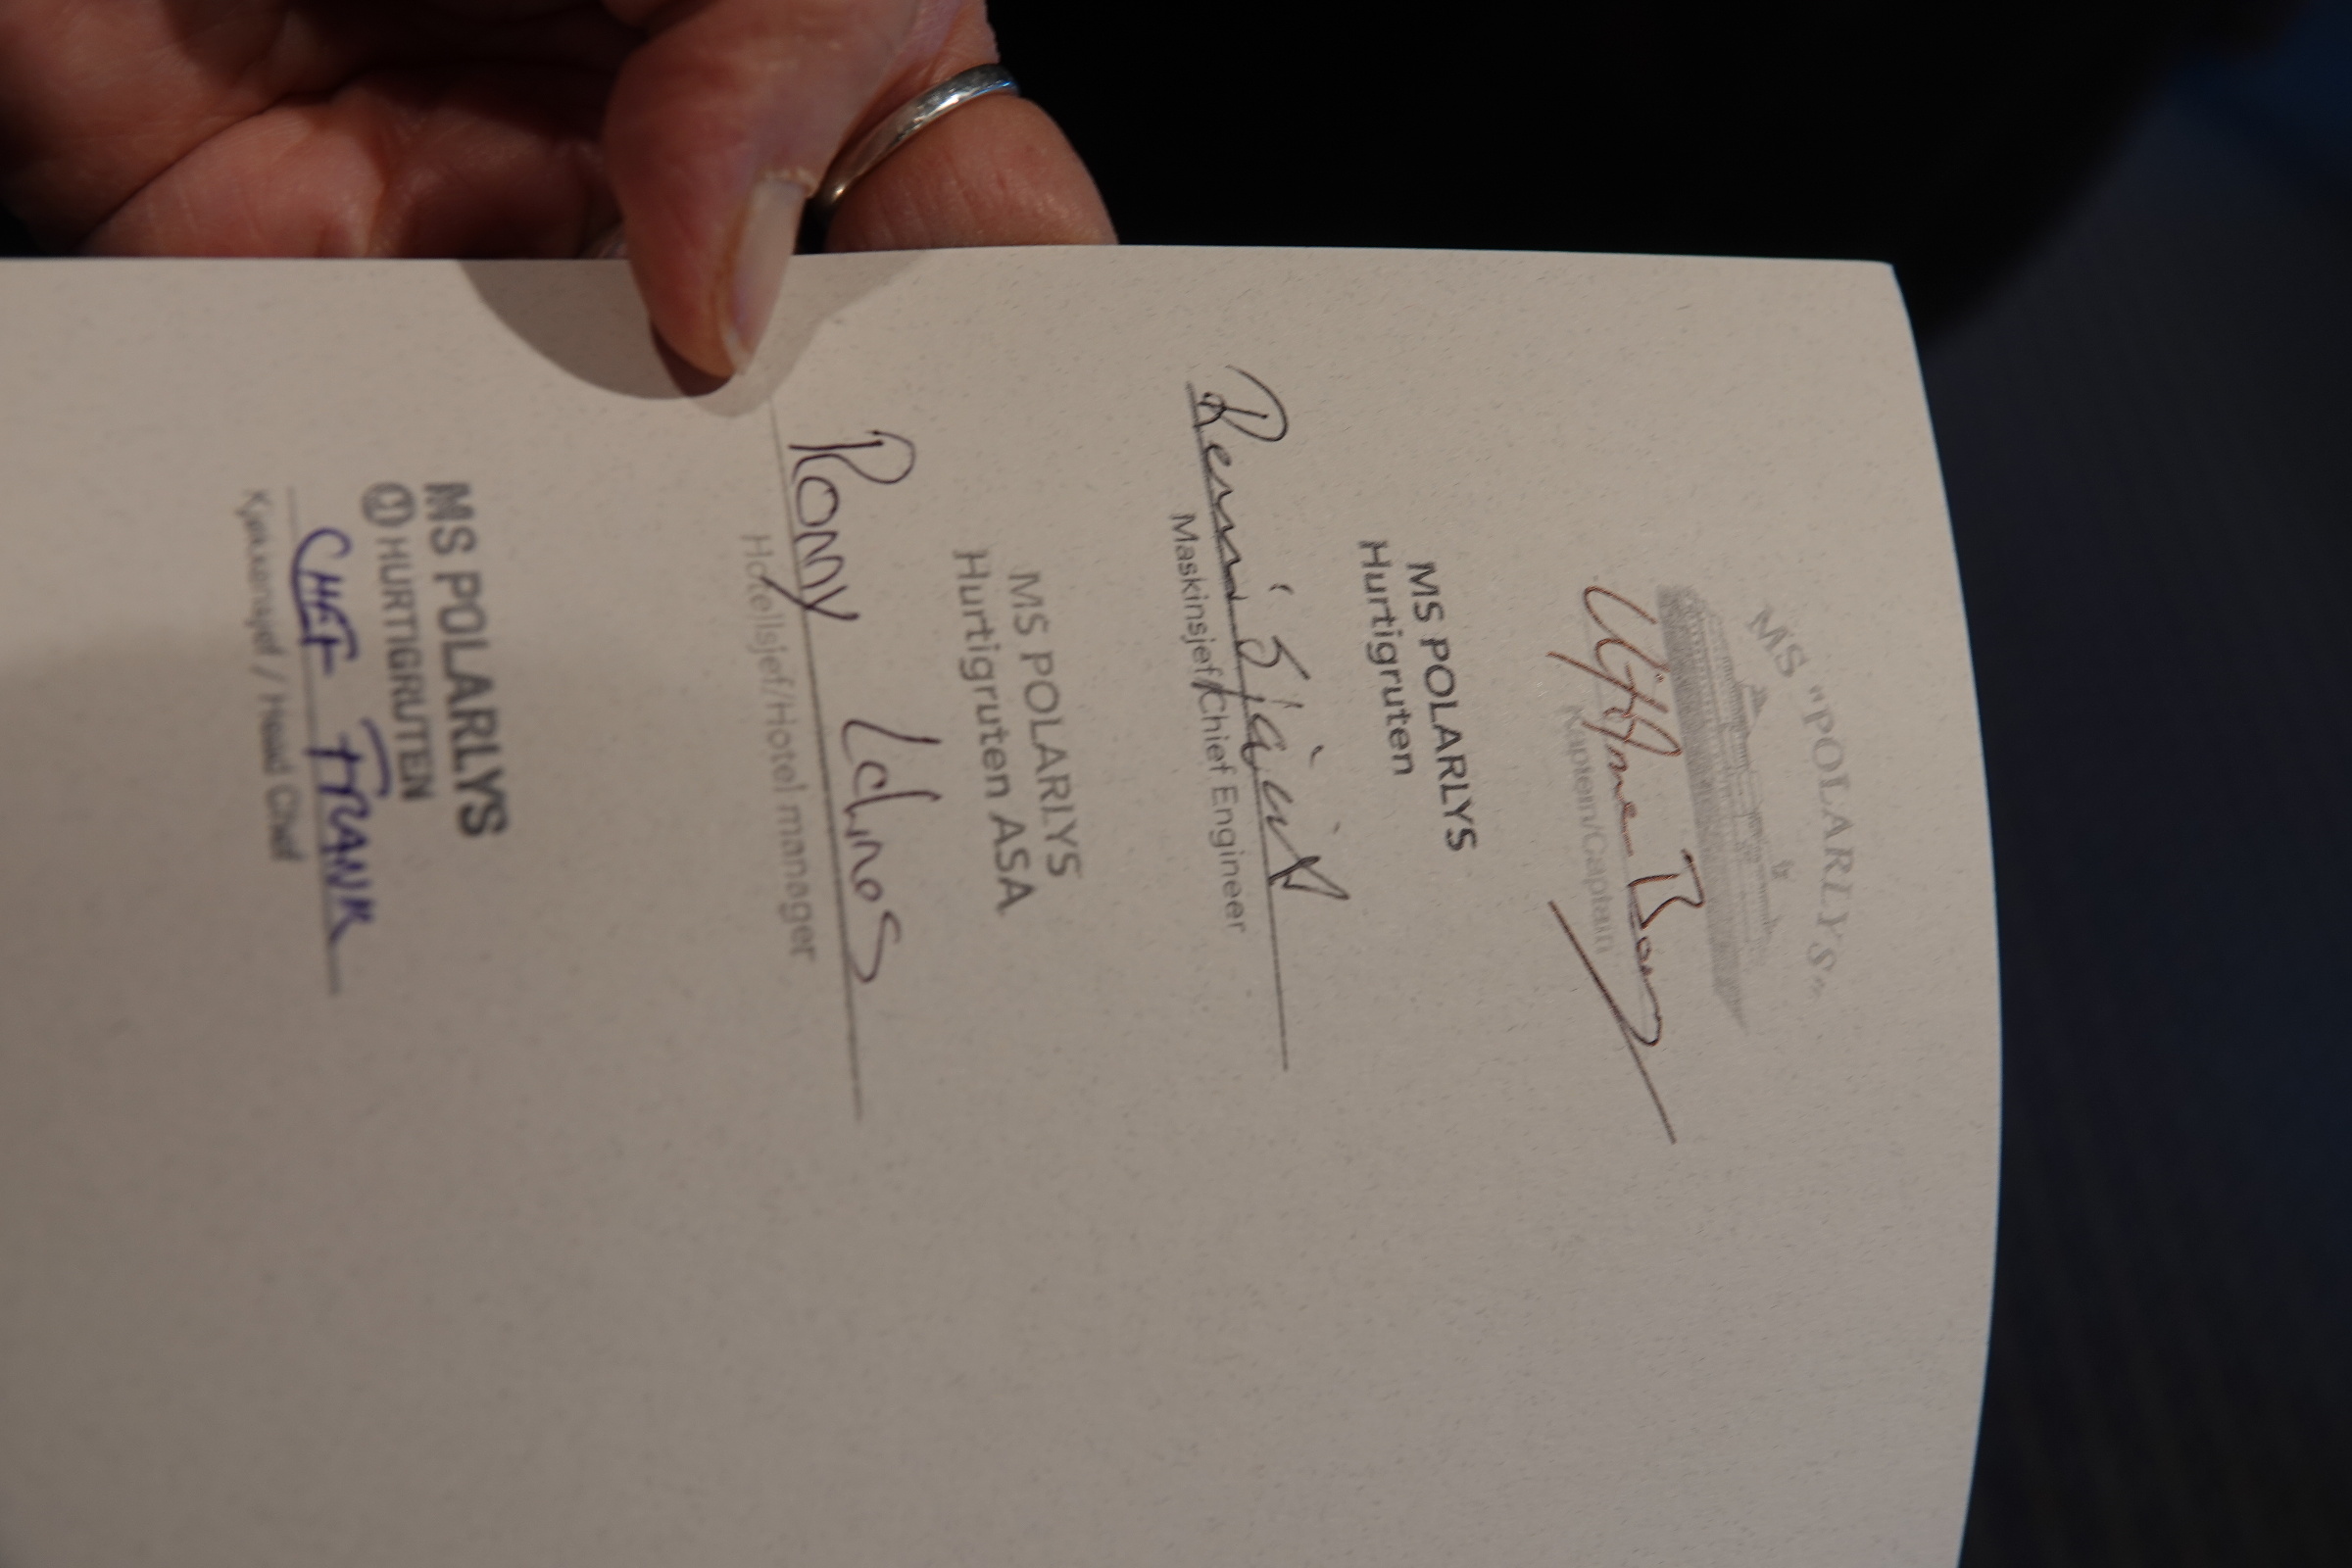 MS "POLARLYS"
Kaptein/Captain
MS POLARLYS
Hurtigruten
Remi
Maskinsjef/Chief Engineer
MS POLARLYS
Hurtigruten ASA
Ronny
Hotellsjef/Hotel manager
MS POLARLYS
HURTIGRUTEN
CHEF FRANK
Kjøkkensjef / Head Chef